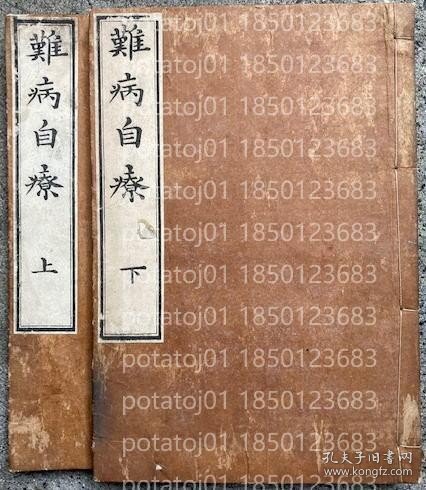 難病自療 上
難病自療 下
potatoj01 1850123683
potatoj01 1850123683
potatoj01 1850123683
potatoj01 1850123683
potatoj01 1850123683
potatoj01 1850123683
potatoj01 1850123683
potatoj01 1850123683
potatoj01 1850123683
孔夫子旧书网
www.kongfz.com